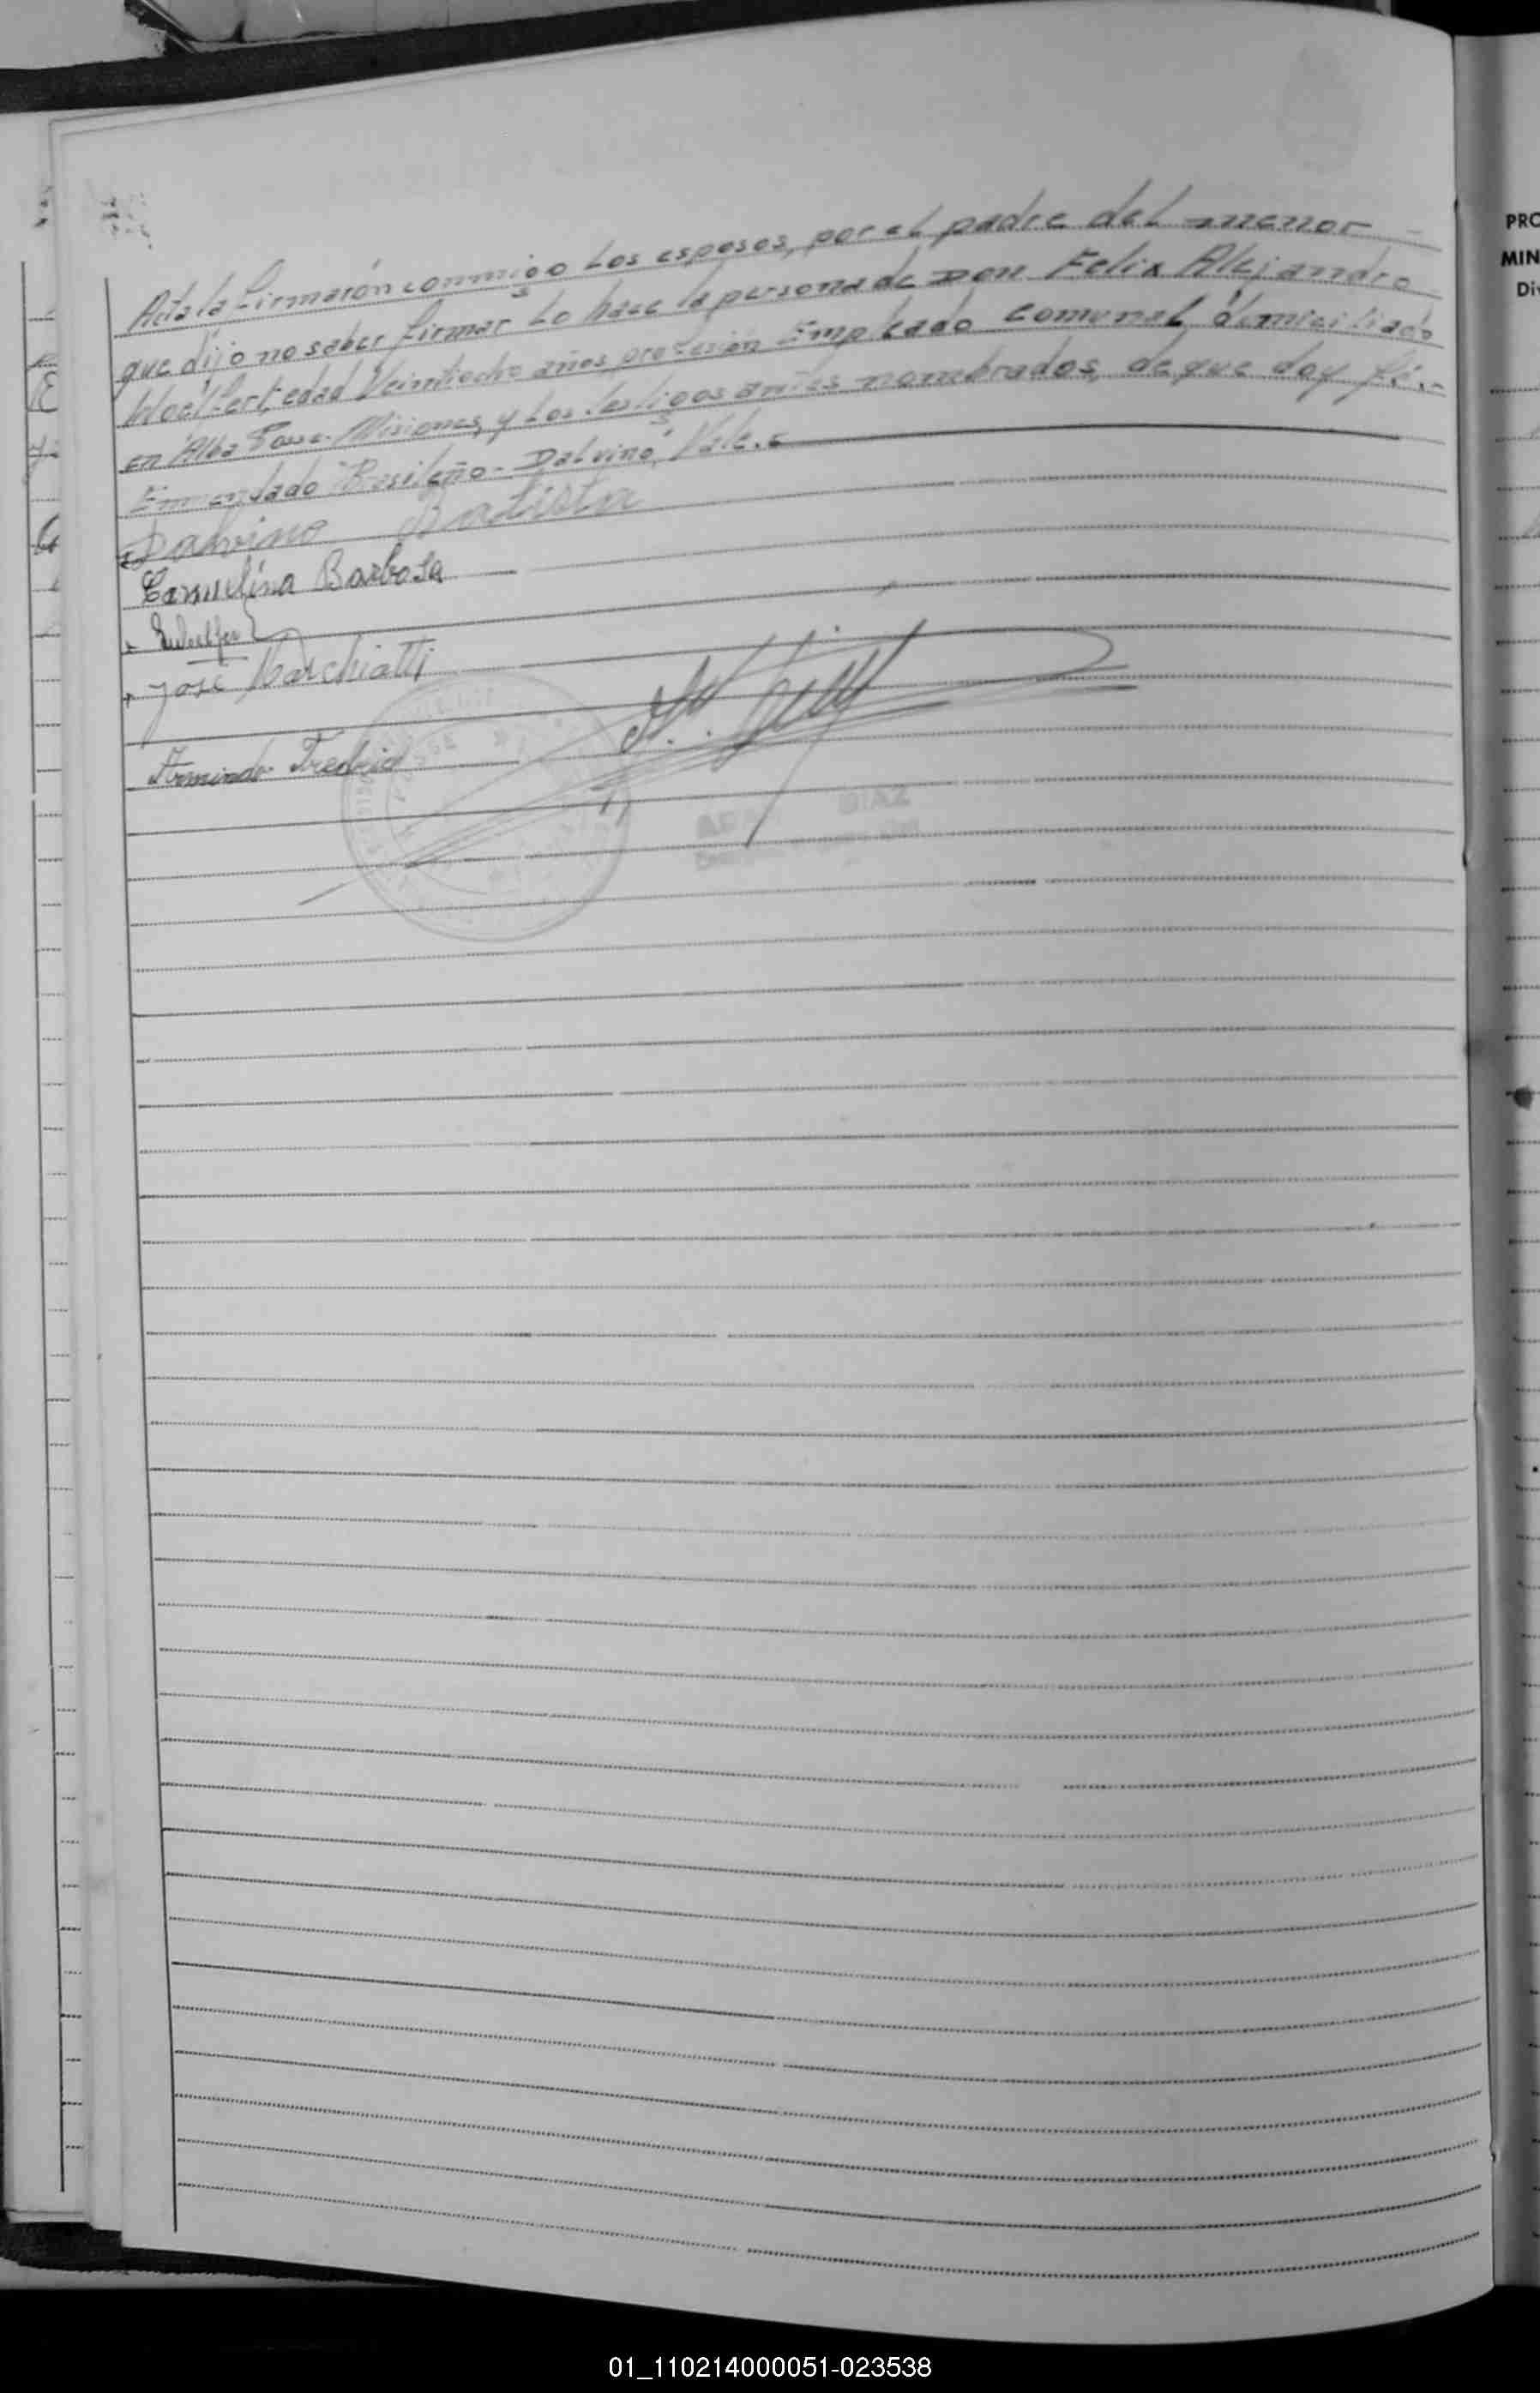 Acta la firmarón conmigo los esposos, por el padre del menor
que dijo no saber firmar lo hace la persona de Don Felix Alejandro
Woelfert, edad Veintiocho años profesión Empleado comunal, domiciliado
en Alba Posse. Misiones, y los testigos antes nombrados, de que doy fé.-
Enmendado "Brasileño - Dalvino" Vale.-
Dalvino Batista
Carmelina Barbosa
José Marchiatti
Armindo
DIAZ
PRO
MIN
Di
01_110214000051-023538